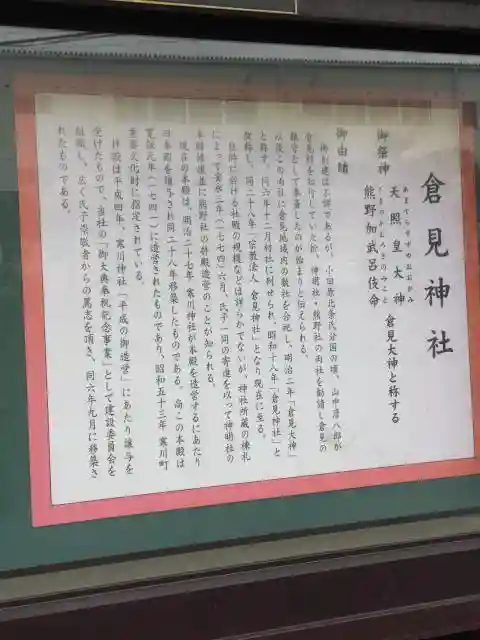 倉見神社
御祭神
あまてらすすめおおかみ
天照皇大神
倉見大神と称する
くまのかむろぎのみこと
熊野加武呂伎命
御由緒
御創建は不詳であるが、小田原北条氏分国の頃、山中彦八郎が
倉見村を知行していた折、神明社・熊野社の両社を勧請し倉見の
鎮守として奉斎したのが始まりと伝えられる。
以後この両社に倉見地域内の数社を合祀し、明治二年「倉見大神」
と称す。同六年十二月村社に列せられ、昭和十八年「倉見神社」と
改称し、同二十八年「宗教法人 倉見神社」となり現在に至る。
往時に於ける社殿の規模などは詳らかでないが、神社所蔵の棟札
によって安永三年(一七七四)六月、氏子一同の寄進を以って神明社の
本殿修復並に熊野社の拝殿造営のことが知られる。
現在の本殿は、明治二十七年、寒川神社が本殿を造営するにあたり
旧本殿を譲与され同二十八年移築したものである。尚この本殿は
寛保元年(一七四一)に造営されたものであり、昭和五十三年、寒川町
重要文化財に指定されている。
拝殿は平成四年、寒川神社「平成の御造営」にあたり譲与を
受けたもので、当社の「御大典奉祝記念事業」として建設委員会を
組織し、広く氏子崇敬者からの篤志を頂き、同六年九月に移築さ
れたものである。